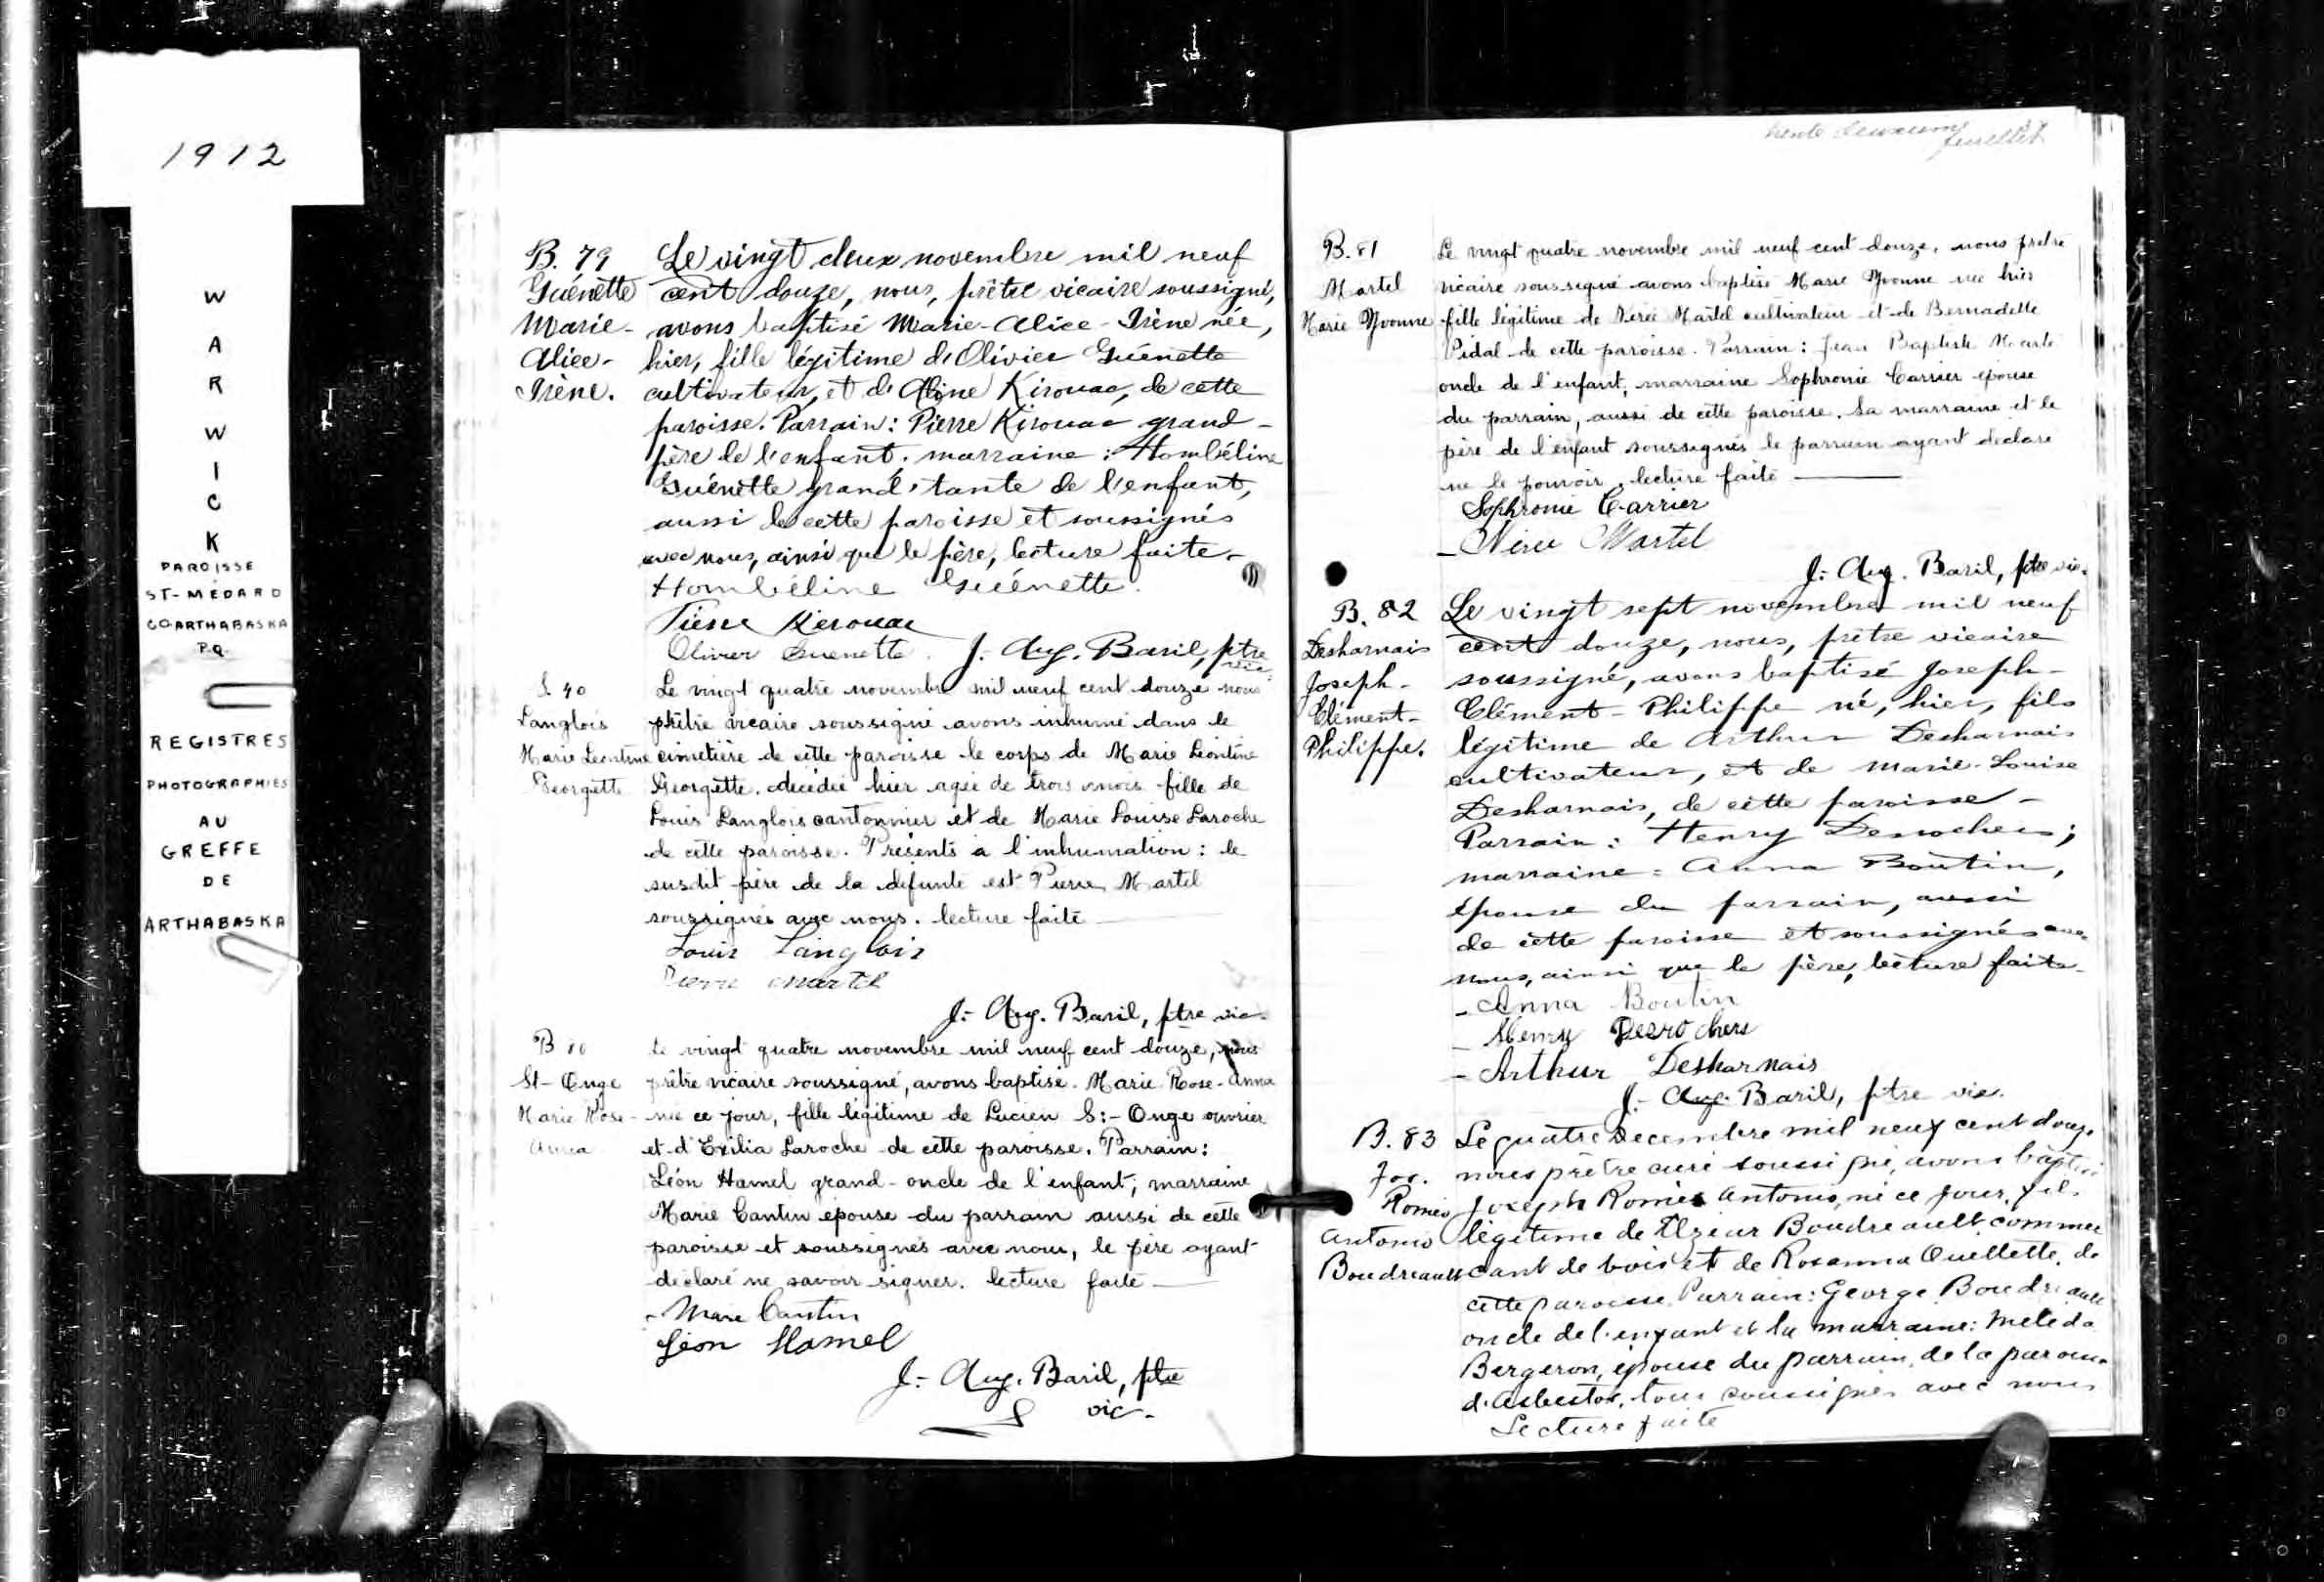 1912
WARWICK
PAROISSE
ST-MÉDARD
CO ARTHABASKA
P.Q.
REGISTRES
PHOTOGRAPHIES
AU
GREFFE
DE
ARTHABASKA
B. 79
Guénette
Marie-
Alice-
Irène.
Le vingt deux novembre mil neuf
cent douze, nous, prêtre vicaire soussigné,
avons baptisé Marie-Alice-Irène née,
hier, fille légitime de Olivier Guénette
cultivateur, et de Kirouac, de cette
paroisse. Parrain: Pierre Kirouac grand-
père de l'enfant. marraine: Hombéline
Guénette grand'tante de l'enfant,
aussi de cette paroisse et soussignés
avec nous, ainsi que le père, lecture faite.-
Hombéline Guénette.
Pierre Kirouac
Olivier Guenette. J.- Aug. Baril, ptre
vic.
S. 40
Langlois
Marie Leontine
Georgette
Le vingt quatre novembre mil neuf cent douze nous
prêtre vicaire soussigné avons inhumé dans le
cimetière de cette paroisse le corps de Marie Léontine
Georgette. décédée hier agée de trois mois fille de
Louis Langlois cantonnier et de Marie Louise Laroche
de cette paroisse. Présents a l'inhumation: le
susdit père de la défunte est Pierre Martel
soussignés avec nous. lecture faite
Louis Langlois
Pierre Martel
J.- Aug. Baril, ptre vic-
B 80
St-Onge
Marie Rose-
Anna
Le vingt quatre novembre mil neuf cent douze, nous
prêtre vicaire soussigné, avons baptisé. Marie Rose-Anna
née ce jour, fille légitime de Lucien S:-Onge ouvrier
et d'Exilia Laroche de cette paroisse. Parrain:
Léon Hamel grand-oncle de l'enfant; marraine
Marie Cantin epouse du parrain aussi de cette
paroisse et soussignés avec nous, le père ayant
déclaré ne savoir signer. lecture faite
- Marie Cantin
Léon Hamel
J.- Aug. Baril, ptre
vic-
feuillet
B. 81
Martel
Marie Yvonne
Le vingt quatre novembre mil neuf cent douze, nous pretre
vicaire soussigné avons baptisé Marie Yvonne née hier
fille légitime de Nérée Martel cultivateur et de Bernadette
Pidal de cette paroisse. Parrain: Jean Baptiste Marte
oncle de l'enfant; marraine Sophronie Carrier epouse
du parrain, aussi de cette paroisse. La marraine et le
père de l'enfant soussignés le parrain ayant declaré
ne le pouvoir, lecture faite
Sophronie Carrier
- Martel
J.- Aug. Baril, ptre vic.
B. 82
Desharnais
Joseph-
Clément-
Philippe.
Le vingt sept novembre mil neuf
cent douze, nous, prêtre vicaire
soussigné, avons baptisé Joseph-
Clément-Philippe né, hier, fils
légitime de Arthur Desharnais
cultivateur, et de Marie-Louise
Desharnais, de cette paroisse-
Parrain: Henry Desrochers;
marraine: Anna Boutin,
épouse du parrain, aussi
de cette paroisse et soussignés avec
nous, ainsi que le père, lecture faite-
- Anna Boutin
- Henry Desrochers
- Arthur Desharnais
J.- Aug. Baril, ptre vic.
B. 83
Jos.
Roméo
Antonio
Boudreault
Le quatre Decembre mil neuf cent douze
nous prêtre curé soussigné, avons baptisé
Joseph Roméo Antonio, né ce jour, fils
légitime de Elzéar Boudreault commer
cant de bois et de Rosanna Ouellette, de
cette paroisse. Parrain: George Boudreault
oncle de l'enfant et la marraine:
Bergeron, épouse du parrain, de la paroisse
d'Asbestos, tous soussignés avec nous
Lecture faite